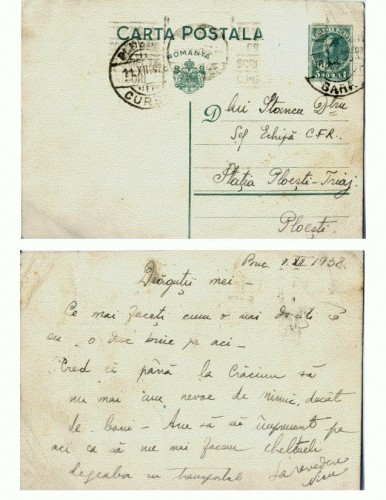 CARTA POSTALA
ROMANIA
GARA
D lui Stancu Dtru
Șef Echipă C.F.R.
Stația Ploești-Triaj
Ploești.
Buc. 1938
Drăguții mei -
Ce mai faceți cum o mai duceți
eu - o duc bine pe aci -
Cred că până la Crăciun să
nu mai am nevoe de nimic, decât
de bani - Am să vă împrumut pe
aci ca să ne mai facem cheltueli
degeaba cu transportul La revedere